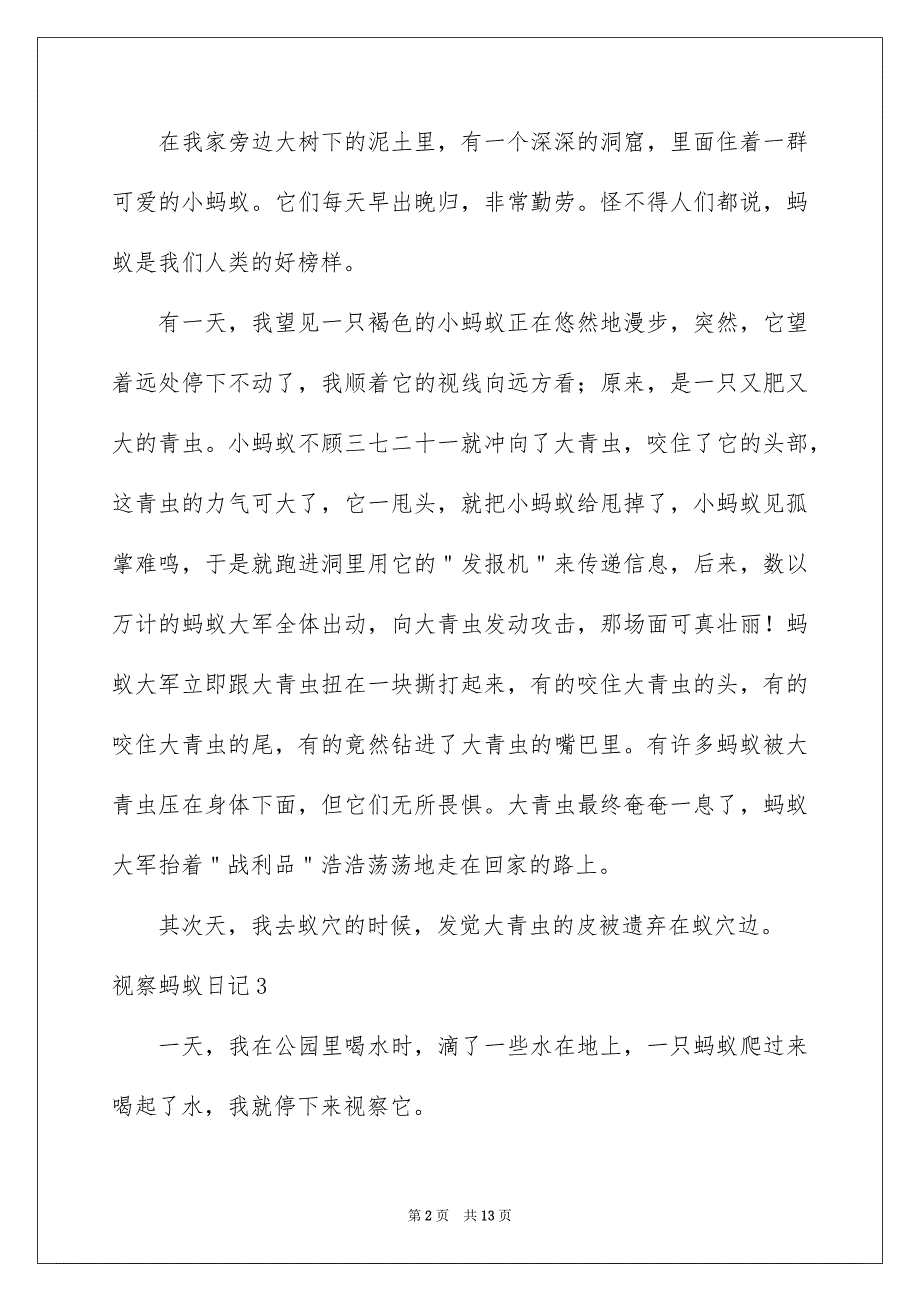 在我家旁边大树下的泥土里，有一个深深的洞窟，里面住着一群
可爱的小蚂蚁。它们每天早出晚归，非常勤劳。怪不得人们都说，蚂
蚁是我们人类的好榜样。
有一天，我望见一只褐色的小蚂蚁正在悠然地漫步，突然，它望
着远处停下不动了，我顺着它的视线向远方看；原来，是一只又肥又
大的青虫。小蚂蚁不顾三七二十一就冲向了大青虫，咬住了它的头部，
这青虫的力气可大了，它一甩头，就把小蚂蚁给甩掉了，小蚂蚁见孤
掌难鸣，于是就跑进洞里用它的＂发报机＂来传递信息，后来，数以
万计的蚂蚁大军全体出动，向大青虫发动攻击，那场面可真壮丽！蚂
蚁大军立即跟大青虫扭在一块撕打起来，有的咬住大青虫的头，有的
咬住大青虫的尾，有的竟然钻进了大青虫的嘴巴里。有许多蚂蚁被大
青虫压在身体下面，但它们无所畏惧。大青虫最终奄奄一息了，蚂蚁
大军抬着＂战利品＂浩浩荡荡地走在回家的路上。
其次天，我去蚁穴的时候，发觉大青虫的皮被遗弃在蚁穴边。
视察蚂蚁日记 3
一天，我在公园里喝水时，滴了一些水在地上，一只蚂蚁爬过来
喝起了水，我就停下来视察它。
第 2 页 共 13 页